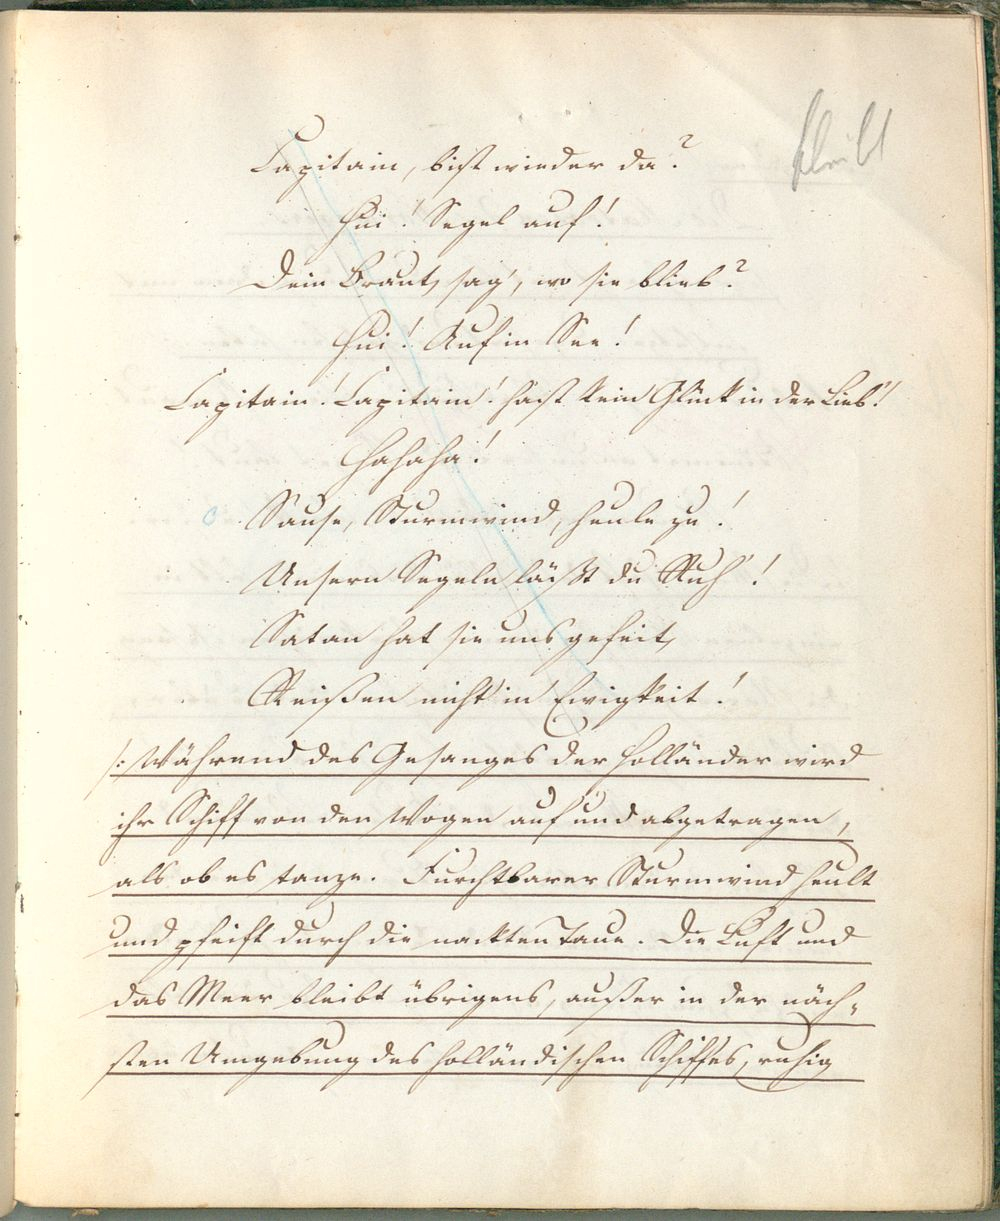 bleibt
Capitain, bist wieder da?
Hui! Segel auf!
Dein Braut, sag', wo sie blieb?
Hui! Auf in See!
Capitain! Capitain! hast kein Glück in der Lieb'!
Hahaha!
Sause, Sturmwind, heule zu!
Unsern Segeln läss't du Ruh'!
Satan hat sie uns gefeit,
Reißen nicht in Ewigkeit!
/: Während des Gesanges der Holländer wird
ihr Schiff von den Wogen auf und abgetragen,
als ob es tanze. Furchtbarer Sturmwind heult
und pfeift durch die nackten Taue. Die Luft und
das Meer bleibt übrigens, außer in der näch„
sten Umgebung des holländischen Schiffes, ruhig